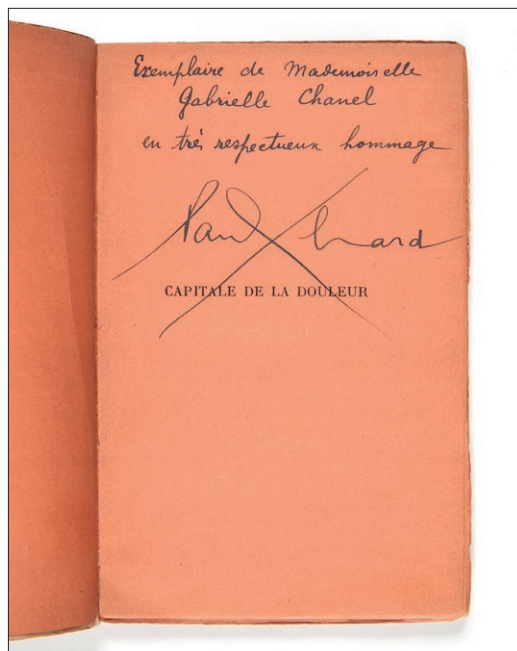 Exemplaire de Mademoiselle
Gabrielle Chanel
en très respectueux hommage
Paul Eluard
CAPITALE DE LA DOULEUR